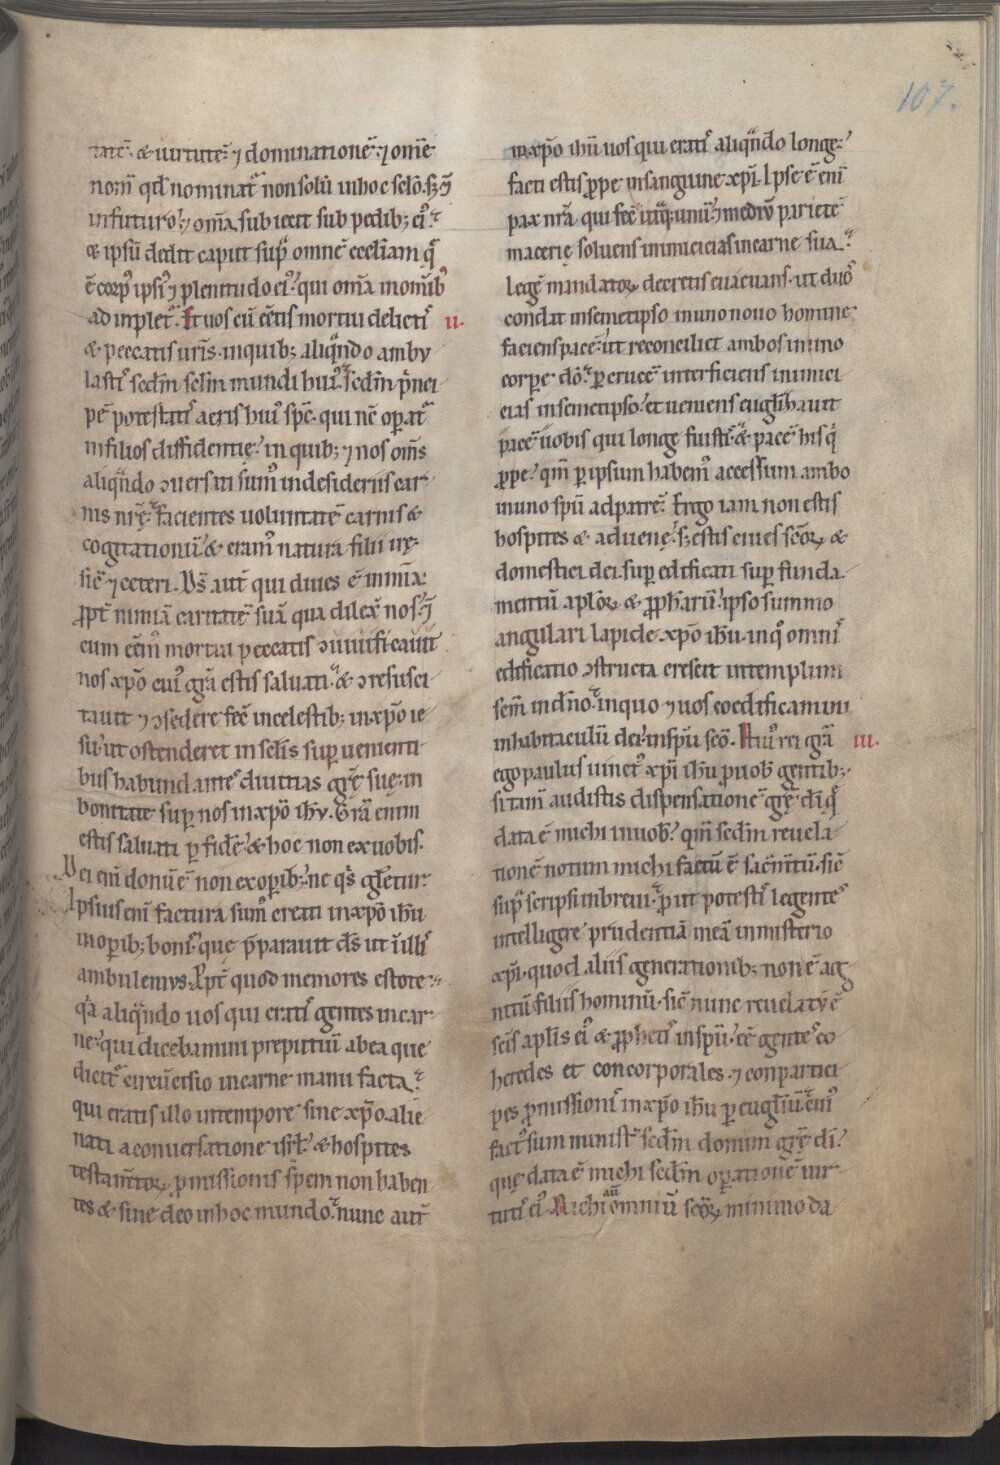 107.
tatē. & uirtutē. ⁊ dominationē. ⁊ om̄e
nom̄ qd̄ nominat᷑ non solū inhoc sc̄lo. sꝫ ⁊
infuturo. ⁊ om̄a subiecit sub pedibꝫ eiꝰ.
& ipsū dedit caput suꝑ omnē eccl̄iam q̄
ē corpꝰ ipsiꝰ ⁊ plenitudo eiꝰ. qui om̄a inom̄ibꝰ
adimplet᷑. Et uos cū eētis mortui delictis ii.
& peccatis ur̄is. inquibꝫ aliqn̄do ambu
lastis scd̄m sclm̄ mundi huiꝰ. scd̄m p̄nci
pē potestatis aeris huiꝰ spc̄. qui nc̄ oꝑat᷑
infilios diffidentię. in quibꝫ ⁊ nos om̄s
aliqn̄do ↄuersati sumꝰ indesideriis car
nis nr̄ę. facientes uoluntatē carnis &
cogitationū. & eramꝰ natura filii irę.
sic̄ ⁊ ceteri. Ds̄ aut̄ qui diues ē in mīa.
ꝓpt̄ nimiā caritatē suā qua dilex̄ nos. ⁊
cum eēmꝰ mortui peccatis ↄuiuificauit
nos xp̄o cuiꝰ gr̄a estis saluati. & ↄresusci
tauit ⁊ ↄsedere fec̄ incelestibꝫ inxp̄o ie
su. ut ostenderet in sclis̄ suꝑuenienti
bus habundantes diuitias gr̄ę suę. in
bonitate suꝑ nos inxp̄o ihu̅. Gr̄a enim
estis saluati ꝑ fidē. & hoc non ex uobis.
Dei eni̅ donū ē non exoꝑibꝫ. ne qs̄ glet̄ur.
Ipsius eni̅ factura sumꝰ creati inxp̄o ihu̅
inoꝑibꝫ bonis. que p̄parauit ds̄ ut i̅ illis
ambulemus. Ꝓpt̄ quod memores estote.
qa̅ aliqn̄do uos qui eratis gentes incar
ne. qui dicebamini preputiū abea que
dicit᷑ circūcisio incarne manu facta.
qui eratis illo intempore sine xp̄o. alie
nati aconuersatione isrl̄. & hospites
testam̄toꝝ ꝓmissionis spem non haben
tes & sine deo inhoc mundo. nunc aut̄
inxp̄o ihu̅ uos qui eratis aliqn̄do longe.
facti estis ꝓpe insanguine xp̄i. Ipse ē eni̅
pax nr̄a. qui fec̄ utraq; unū. ⁊ mediū parietē
macerię soluens inimicicias incarne sua.
legē mandatoꝝ decretis euacuans. ut duos
condat insemetipso inuno nouo homine
faciens pacē. ut reconciliet ambos inuno
corpore dō. ꝑ crucē interficiens inimici
cias insemetipso. et ueniens eugl̄ihauit
pacē uobis qui longe fuistis. & pacē his q̄
ꝓpe. qm̄ ꝑ ipsum habemꝰ accessum ambo
inuno spū adpatrē. Ergo iam non estis
hospites & aduenę. sꝫ estis ciues sc̄oꝝ &
domestici dei. suꝑ edificati suꝑ funda
mentū aplōꝝ & ꝓphārū. ipso summo
angulari lapide xp̄o ihu̅. inqͦ omnis
edificatio ↄstructa crescit intemplum
scm̄ indn̄o. inquo ⁊ uos coedificamini
inhabitaculū dei. inspū sc̄o. Huiꝰ rei gr̄a iii.
ego paulus uinctꝰ xp̄i ihu̅ ꝓ uob̄ gentibꝫ.
si tam̄ audistis dispensationē gr̄ę di̅ q̄
data ē michi inuob̄. qm̄ scd̄m reuela
tionē notum michi factū ē sacm̄tū. sic̄
supᷓ scripsi inbreui. ꝓut potestis legentes
intelligere prudentiā meā inmisterio
xp̄i. quod aliis generationibꝫ non ē ag
nitū filiis hominū. sic̄ nunc reuelatū ē
sc̄is aplis̄ eiꝰ & ꝓphetis inspū. eē gentes co
heredes et concorporales. ⁊ conpartici
pes ꝓmissionis inxp̄o ihu̅ ꝑ eugl̄iū. cuiꝰ
factꝰ sum minist᷑ scd̄m donum gr̄ę di̅.
quę data ē michi scd̄m oꝑationē uir
tutis eiꝰ. Michi aut̄ omniū sc̄oꝝ minimo da